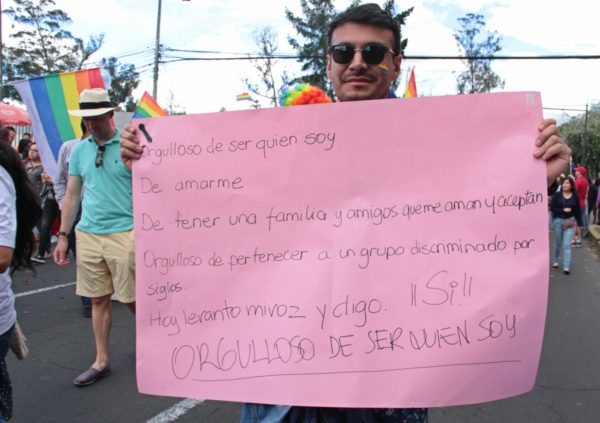 orgulloso de ser quien soy
De amarme
De tener una familia y amigos que me aman y aceptan
Orgulloso de pertenecer a un grupo discriminado por
siglos
Hoy levanto mi voz y digo. ¡¡Si!!
ORGULLOSO DE SER QUIEN SOY